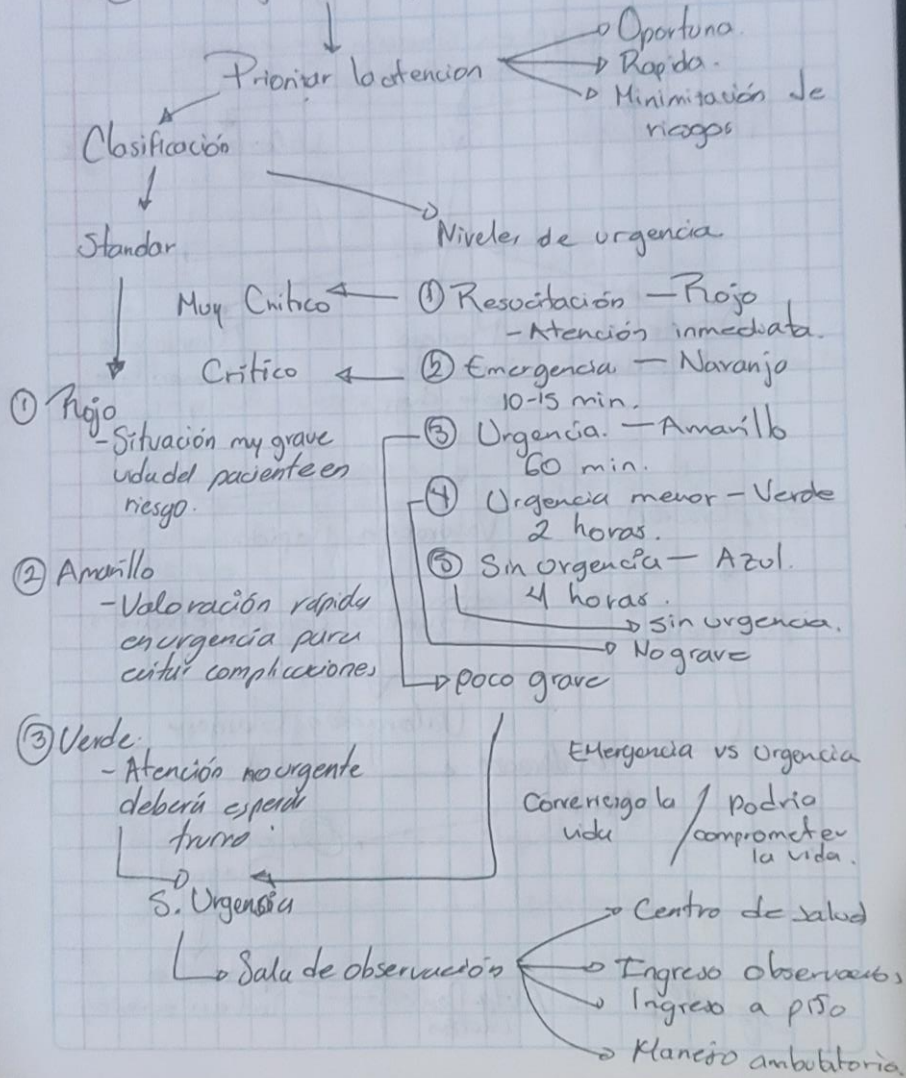 Priorizar la atencion
Oportuna.
Rapida.
Minimización de
riesgos
Clasificación
Standar
Niveles de urgencia
Muy Critico
① Resucitación — Rojo
- Atención inmediata.
Critico
② Emergencia — Naranja
10-15 min.
③ Urgencia. — Amarillo
60 min.
④ Urgencia menor - Verde
2 horas.
⑤ Sin urgencia — Azul.
4 horas.
sin urgencia.
No grave
poco grave
① Rojo
- Situación my grave
vida del paciente en
riesgo.
② Amarillo
- Valoración rápida
en urgencia para
evitar complicaciones
③ Verde:
- Atención no urgente
deberá esperar
turno
S. Urgencia
Sala de observación
Emergencia vs Urgencia
la
vida
/ podria
comprometer
la vida.
Centro de salud
Ingreso
Ingreso a piso
Manejo ambulatorio